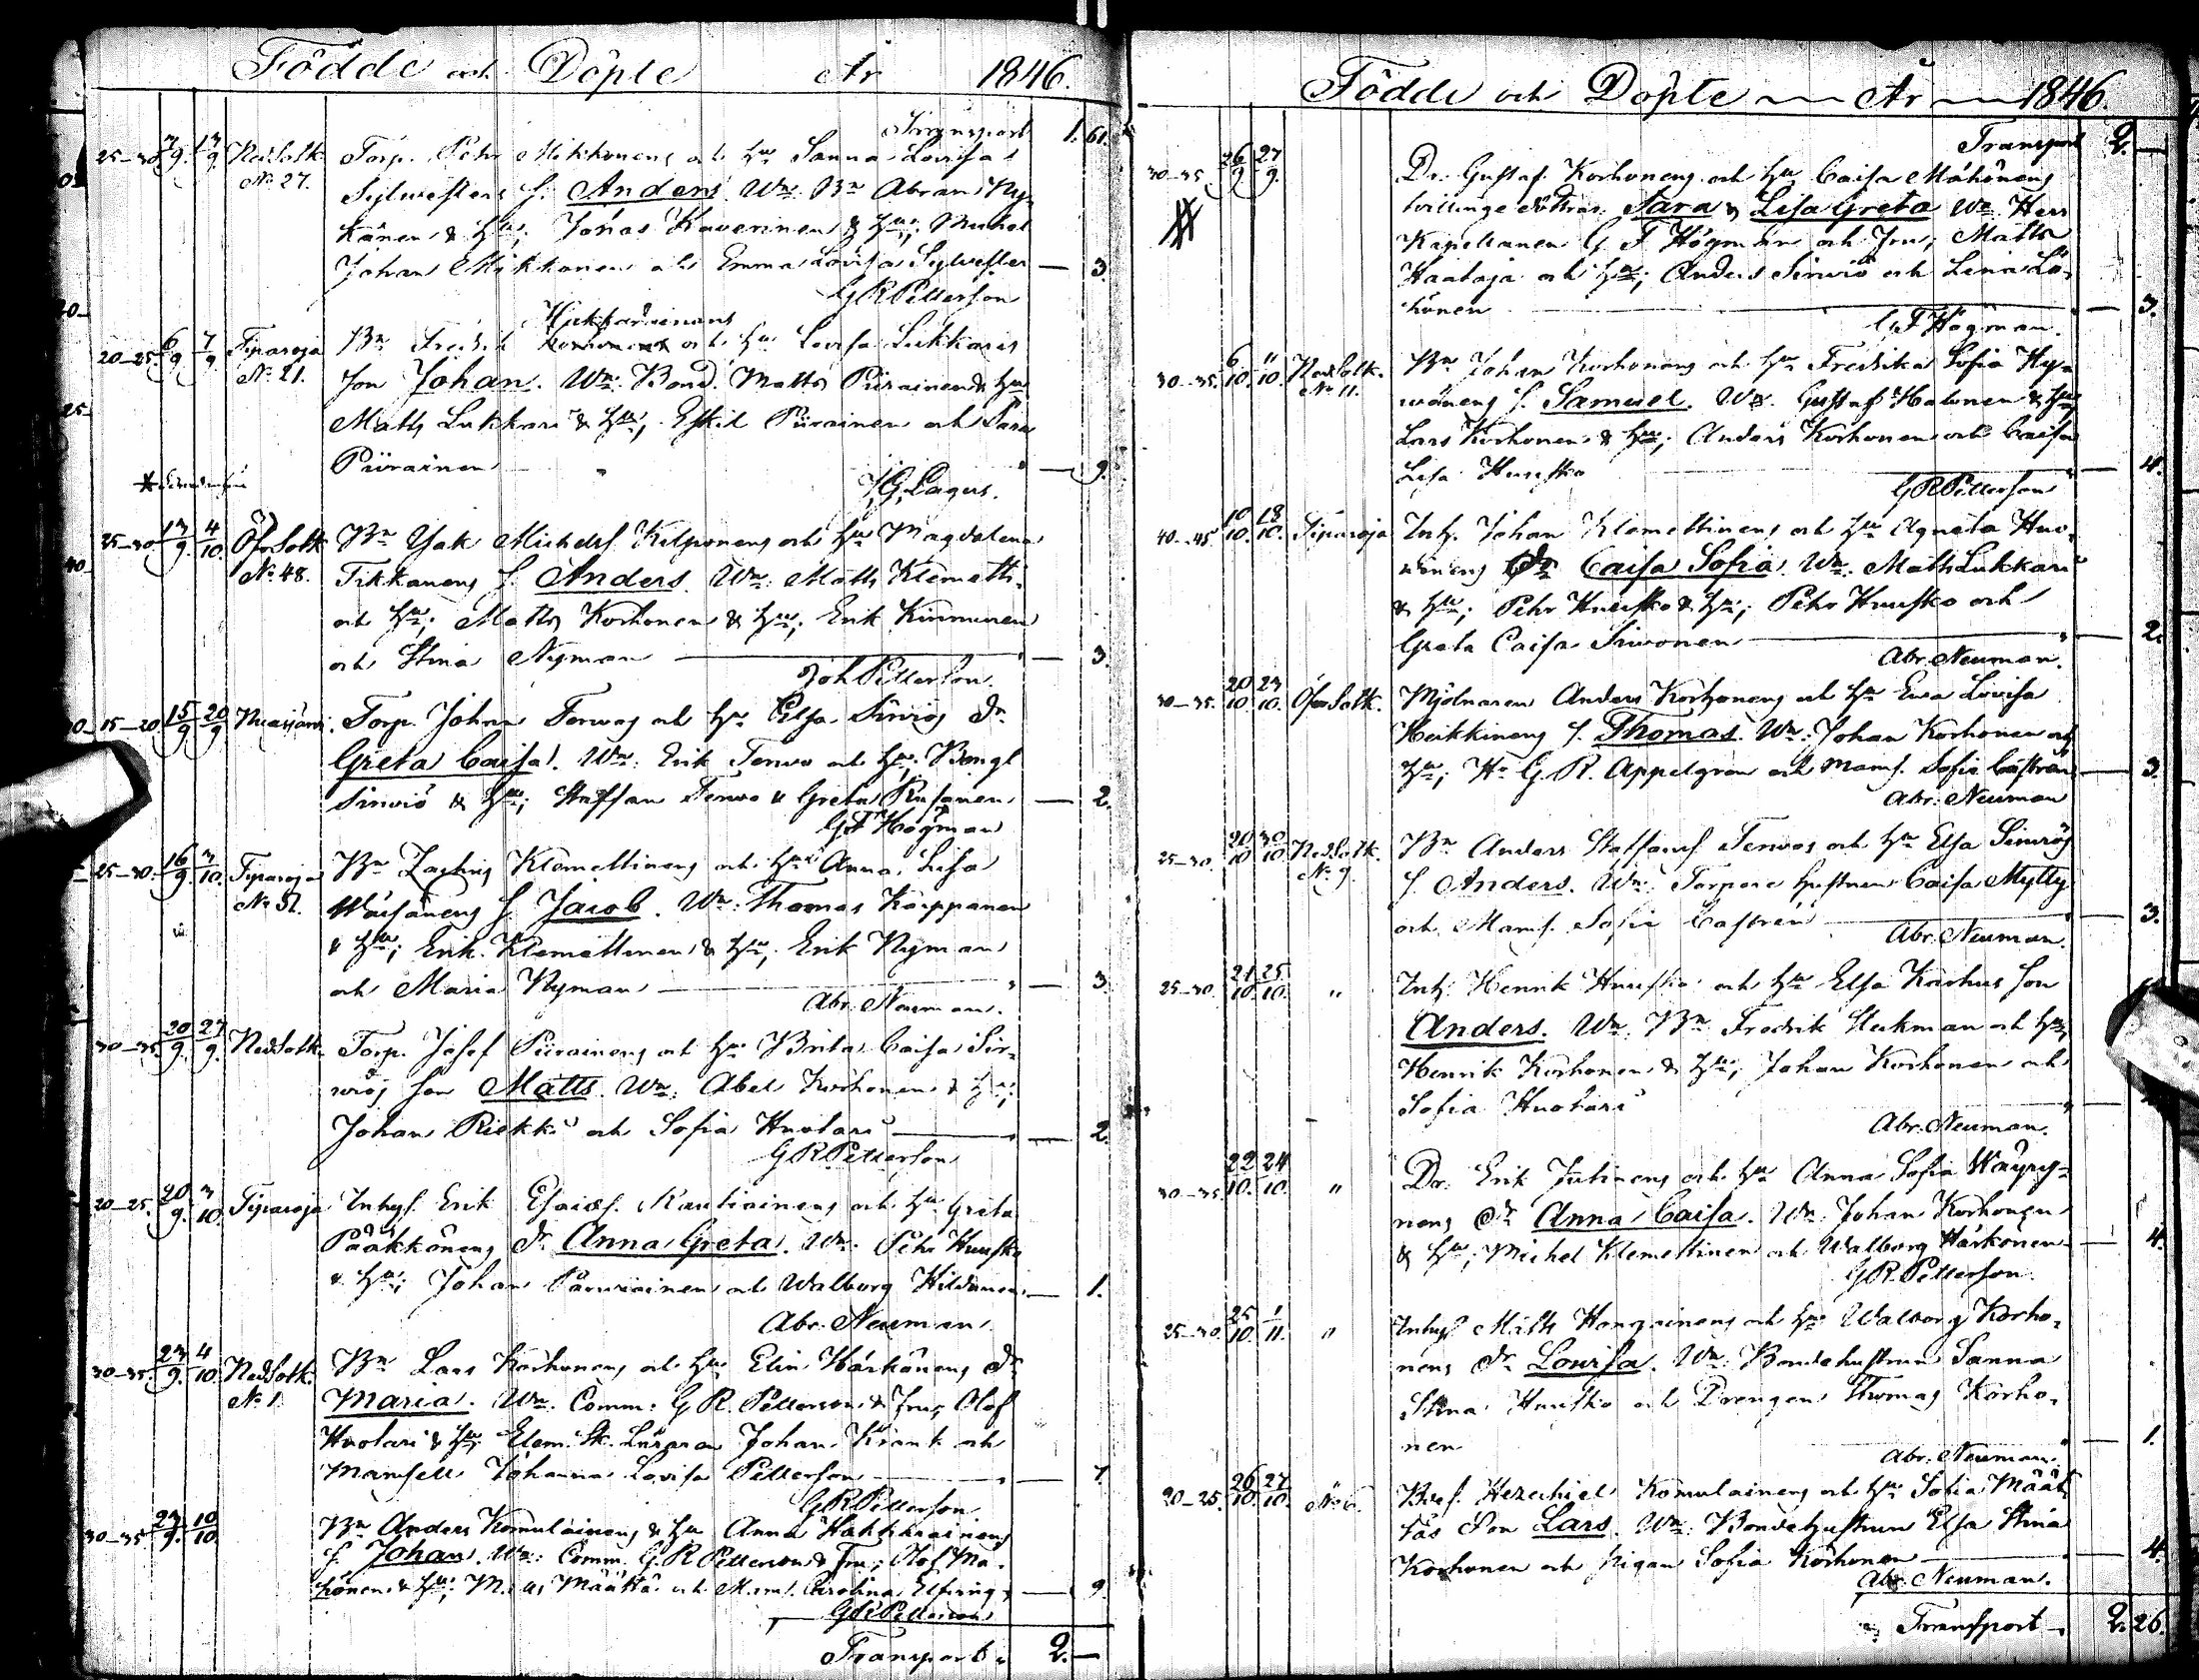 Födde och Döpte År 1846.
Transport 1. 61.
25–30. 7/9. 13/9. Ned Sotk. Torp. Pehr Mikkonens och hu Sanna Lovisa
No 27. Sylvesters s. Anders. Wn. Bn Abram Ny-
känen & hu; Jonas Kaverinen & hu; Michel
Johan Mikkonen och Emma Lovisa Sylvester — 3.
GR Petterson
Hukkarainens
20–25. 6/9 7/9. Tiparoja Bn Fredrik och hu Lovisa Lukkaris
No 21. Son Johan. Wn. Bond. Matts Piirainen & hu
Matts Lukkari & hu; Eskil Piirainen och Sara
Piirainen — 9.
Lagus.
25–30. 13/9. 4/10. Öfv Sotk. Bn Isak Michelss. Kilponens och hu Magdalena
No 48. Tikkanens s. Anders. Wn. Matts Klemetti
och hu; Matts Korhonen & hu; Erik Kinnunen
och Stina Nyman — 3.
Joh Petterson.
15–20. 15/9 20/9 Torp. Johan Terwos och hu Elsa Sirviös dr
Greta Caisa. Wn. Erik Terwo och hu; Bengt
Sirviö & hu; Staffan Terwo & Greta Rusanen — 2.
G F Högman
25–30. 16/9. 3/10. Tiparoja Bn Zachris Klemettinens och hu Anna Lisa
No 51. Wäisänens s. Jacob. Wn. Thomas Karppanen
& hu; Erik Klemettinen & hu; Erik Nyman
och Maria Nyman — 3.
Abr. Neuman.
30–35. 20/9. 27/9. Ned Sotk. Torp. Josef Piirainens och hu Brita Caisa Sir-
wiös son Matts. Wn. Abel Korhonen & hu;
Johan Riekki och Sofia Huotari — 2.
GR Petterson
20–25. 20/9. 3/10. Tiparoja Inhys. Erik Esaiæs. Rautiainens och hu Greta
Pääkkönens dr Anna Greta. Wn. Pehr Huusko
& hu; Johan Parviainen och Walborg Hildunen — 1.
Abr. Neuman.
30–35. 23/9. 4/10. Ned Sotk. Bn Lars Korhonens och hu Elin Härkönens dr
No 1. Maria. Wn. Comm. GR Petterson & fru; Olof
Huotari & hu; Elem. Sk. Läraren Johan Krank och
Mamsell Johanna Lovisa Petterson — 7.
GR Petterson.
30–35 23/9. 10/10. Bn Anders Komulainens & hu Anna Hakkarainens
s. Johan. Wn. Comm. GR Petterson & fru; Olof Ma-
hönen & hu; Määttä och Mams. Carolina Elfving — 9.
GR Petterson
Transport 2. —
Födde och Döpte — År — 1846.
Transport 2. —
30–35 26/9 27/9. Dr. Gustaf Korhonens och hu Caisa Mähönens
tvillinge döttrar Sara & Lisa Greta. Wn. Herr
Kapellanen G F Högman och fru; Matts
Haataja och hu; Anders Sirviö och Lena Lö-
hönen — 3.
G F Högman.
30–35. 6/10. 11/10. Ned Sotk. Bn Johan Korhonens och hu Fredrika Sofia Hy-
No 11. vönens s. Samuel. Wn. Gustaf Halonen & hu;
Lars Korhonen & hu; Anders Korhonen och Caisa
Lisa Huusko — 4.
GR Petterson
40–45. 10/10. 18/10. Tiparoja Inh. Johan Klemettinens och hu Agneta Huo-
vinens dr Caisa Sofia. Wn. Matts Lukkari
& hu; Pehr Huusko & hu; Pehr Huusko och
Greta Caisa Sirvonen — 2.
Abr. Neuman.
30–35. 20/10. 23/10. Öfv Sotk. Mjölnaren Anders Korhonens och hu Eva Lovisa
Heikkinens s. Thomas. Wn. Johan Korhonen och
hu; Hr G. R. Appelgren och Mams. Sofie Castrén — 3.
Abr. Neuman
25–30. 20/10 30/10 Ned Sotk. Bn Anders Staffanss. Terwos och hu Elsa Sirviös
No 9. s. Anders. Wn. Torpare hustrun Caisa Mytty
och Mams. Sofie Castrén — 3.
Abr. Neuman.
25–30. 21/10. 25/10. " Inh. Henrik Huusko och hu Elsa Karhus son
Anders. Wn. Bn Fredrik Heikman och hu;
Henrik Korhonen & hu; Johan Korhonen och
Sofia Huotari
Abr. Neuman.
30–35. 22/10. 24/10. " Dr. Erik Jutinens och hu Anna Sofia Wäyry-
nens dr Anna Caisa. Wn. Johan Korhonen
& hu; Michel Klemettinen och Walborg Härkönen — 4.
GR Petterson.
25–30. 25/10 1/11. " Inhys. Matts Hongainens och hu Walborg Korho-
nens dr Lovisa. Wn. Bondehustrun Sanna
Stina Huusko och Drengen Thomas Korho-
nen — 1.
Abr. Neuman.
20–25. 26/10. 27/10. No 6. Bns. Hezechiel Komulainens och hu Sofia Määt-
täs Son Lars. Wn. Bondehustrun Elsa Stina
Korhonen och pigan Sofia Korhonen — 4.
Abr. Neuman.
Transport 2. 26.